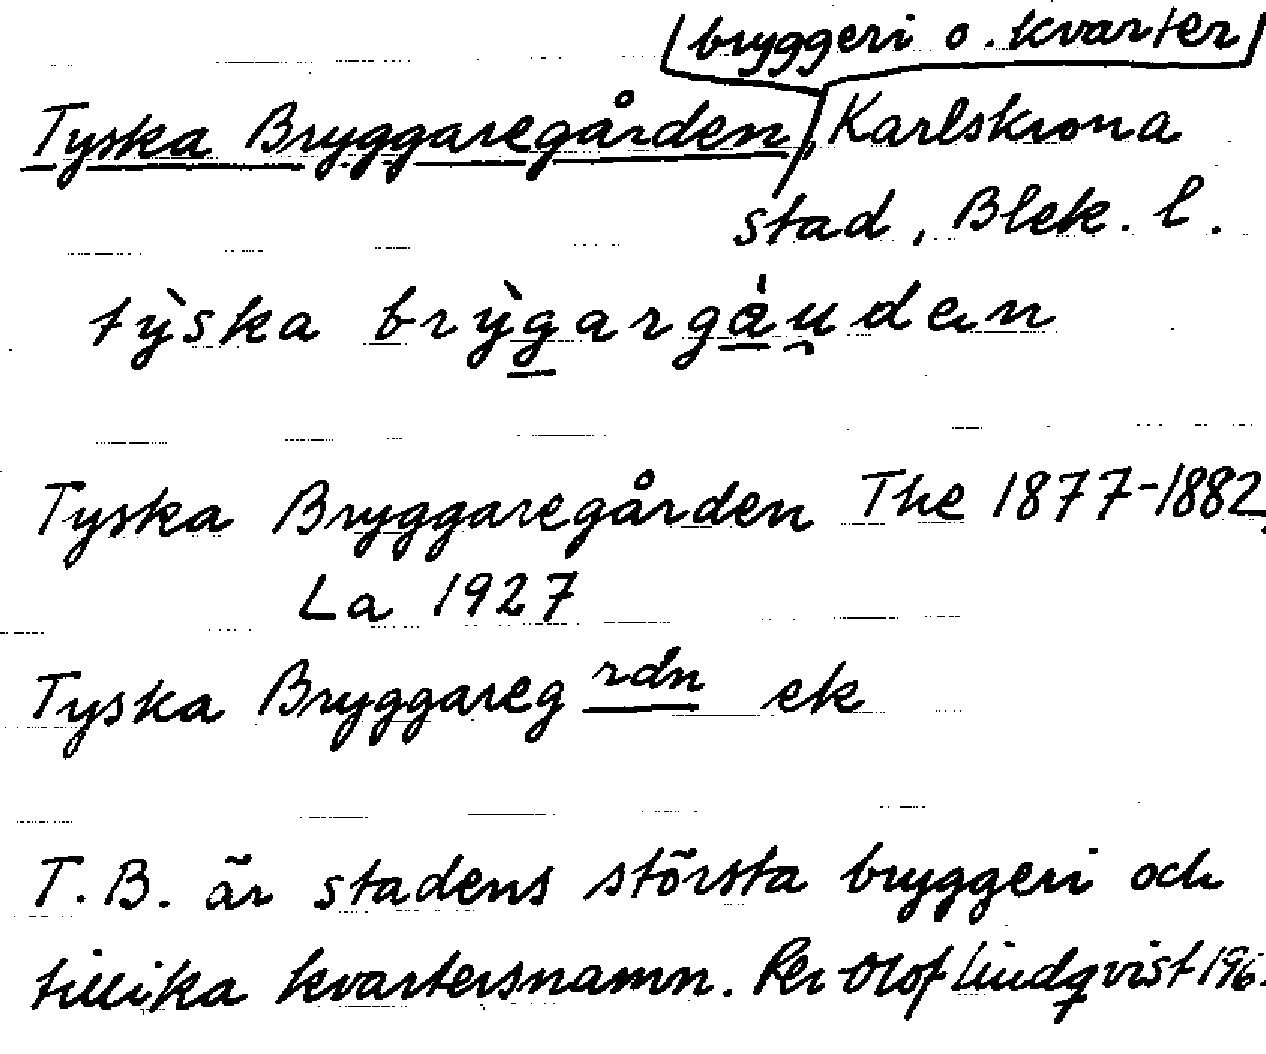 (bryggeri o. kvarter)
Tyska Bryggaregården, Karlskrona
stad, Blek. l.
tỳska brỳgargáu̯dan
Tyska Bryggaregården The 1877-1882,
La 1927
Tyska Bryggareg rdn ek
T.B. är stadens största bryggeri och
tillika kvartersnamn. Per-Olof Lindqvist 196